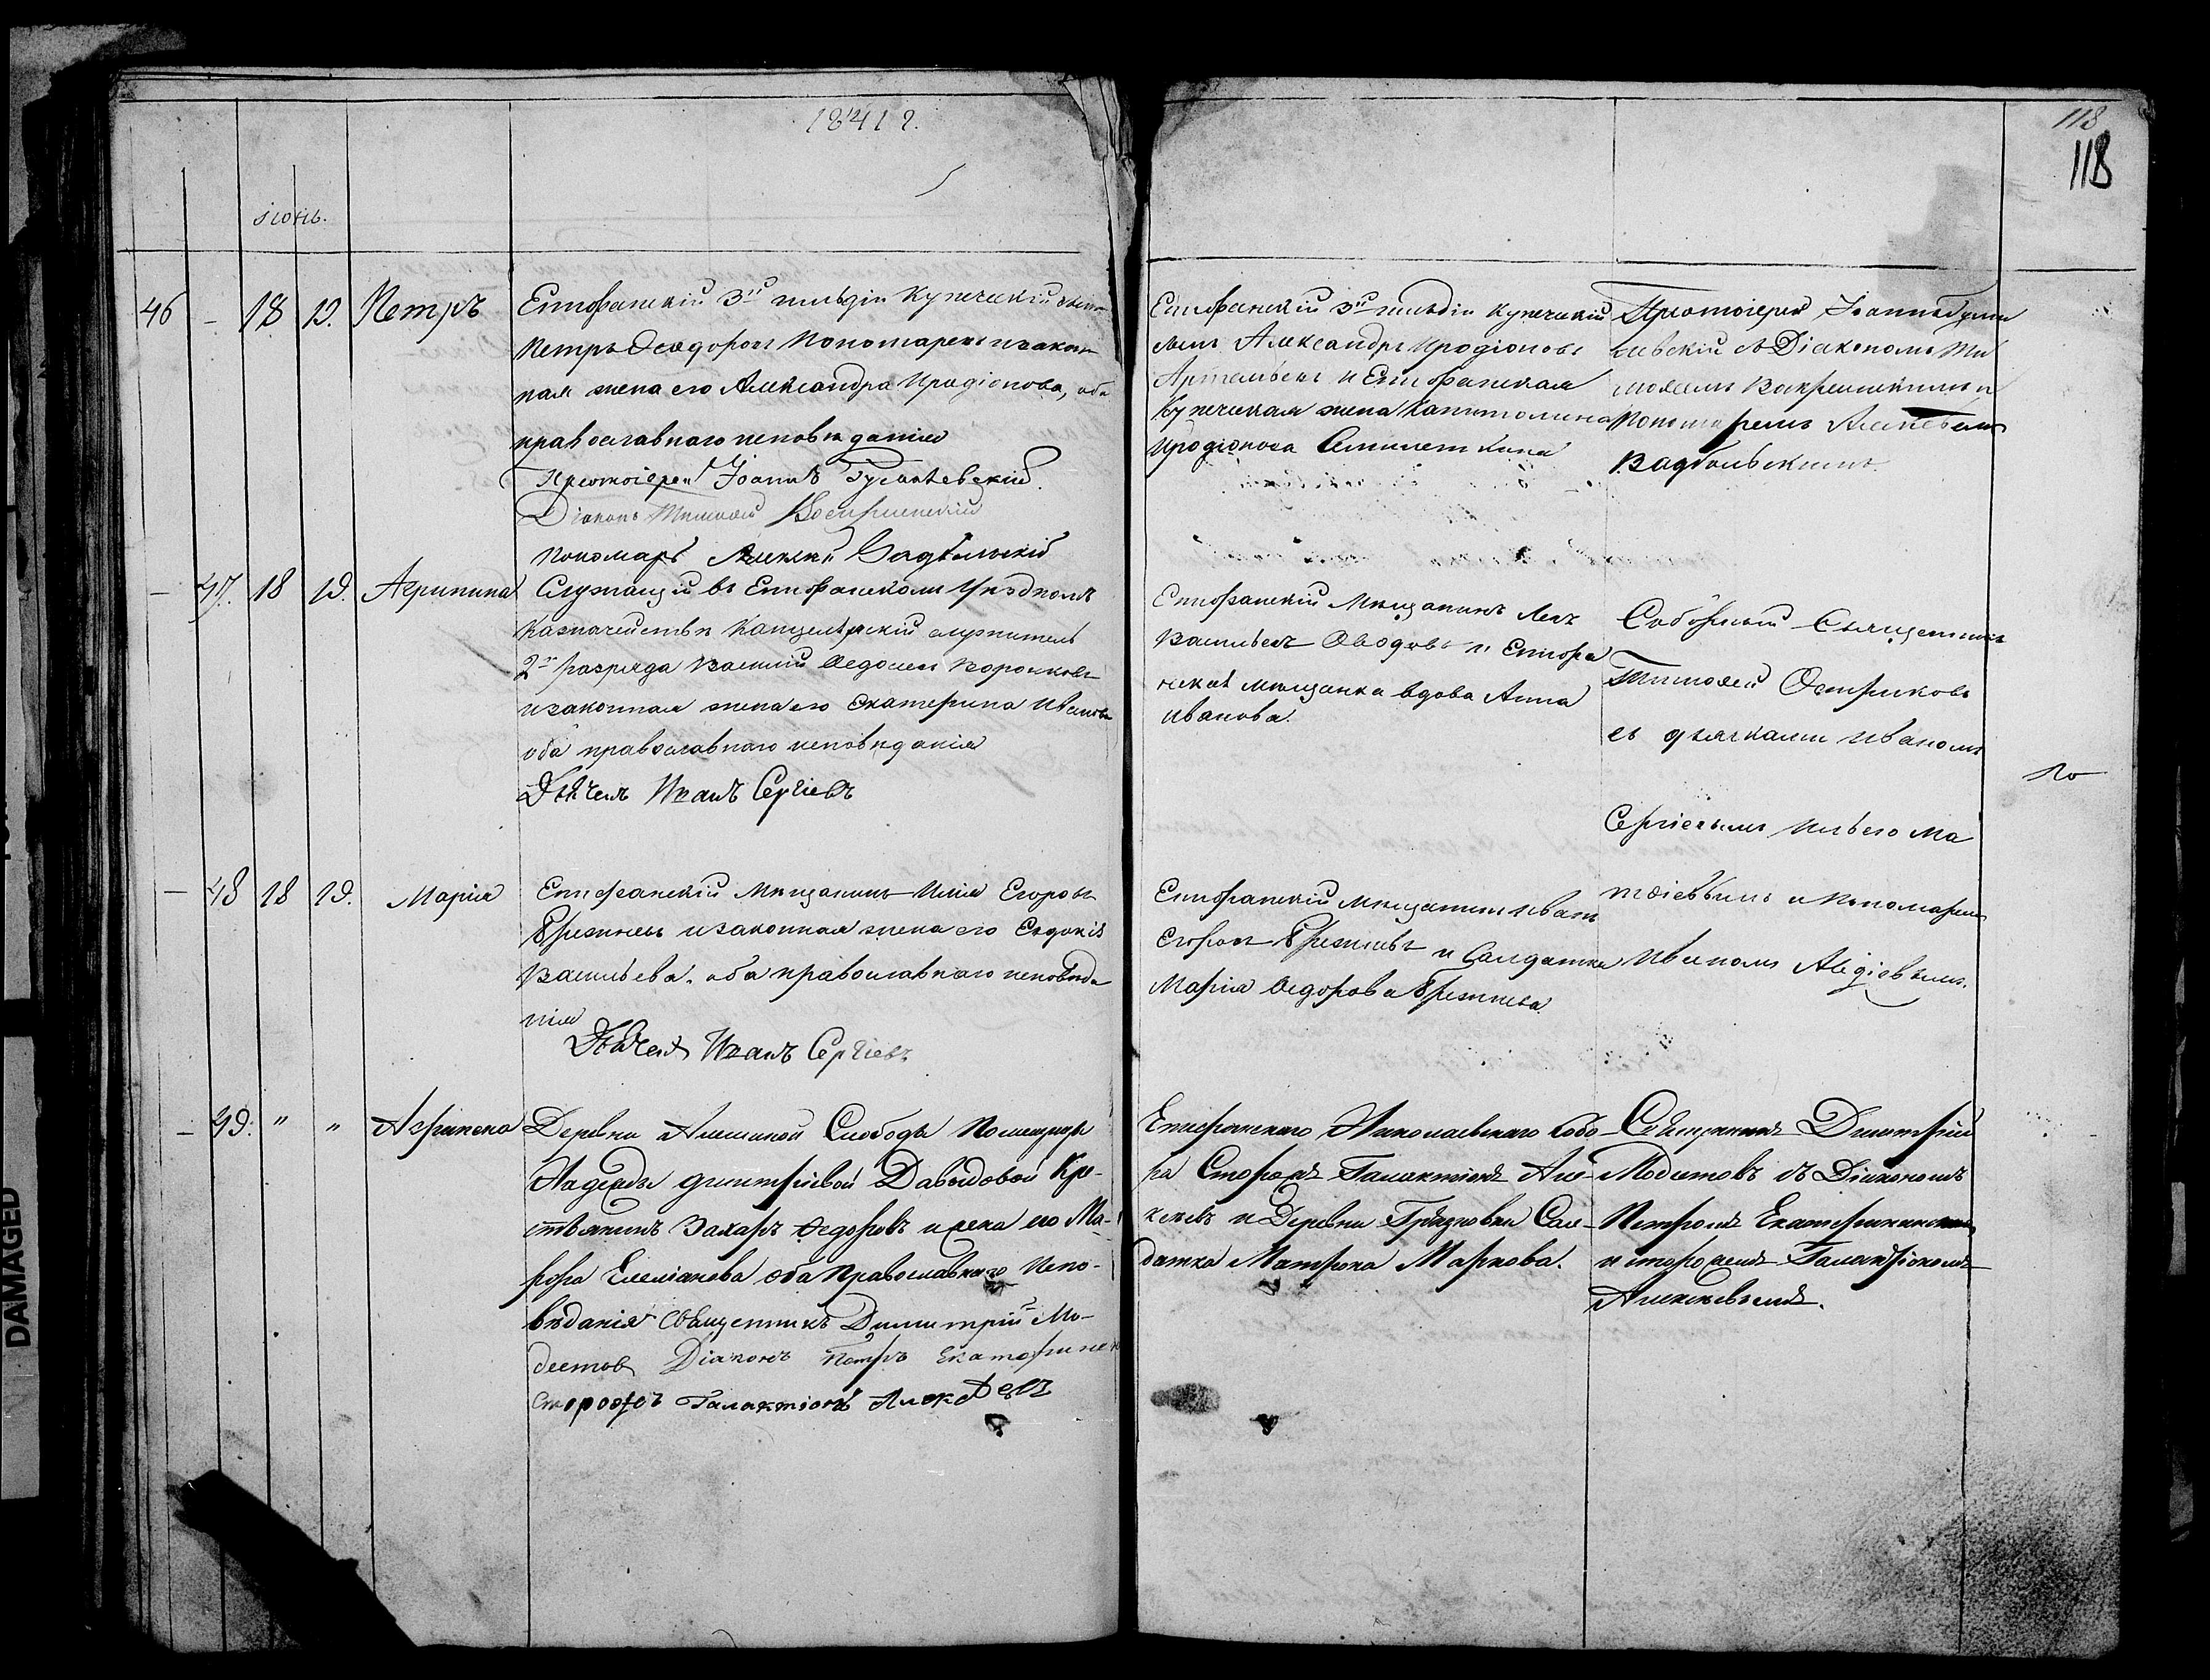 1841 г.
118
118
Іюнь.
46 – 18 19. Петръ
Епифанскій 3й гильдіи Купеческій сынъ
Петръ Ѳеодоровъ Пономаревъ и закон
ная жена его Александра Иродіонова, оба
православнаго исповѣданія
Протоіерей Іоаннъ Гумилевскій
Діаконъ Тимоѳей Воскресенскій
Пономарь Алексѣй Вадбольскій
Епифанскій 3й гильдіи Купеческій
сынъ Александръ Иродіоновъ
и Епифанская
Купеческая жена Капитолина
Иродіонова
Протоіерей Іоаннъ Гуми
левскій съ Діакономъ Ти
моѳеемъ Воскресенскимъ и
Пономаремъ Алексѣемъ
Вадбольскимъ.
– 47. 18 19. Агрипина
Служащій въ Епифанскомъ Уѣздномъ
Казначействѣ Канцелярскій служитель
2го разряда Василій Ѳедоровъ Воронковъ
и законная жена его Екатерина Иванова
оба православнаго исповѣданія
Дьячекъ Иванъ Сергіевъ
Епифанскій Мѣщанинъ Левъ
Васильевъ Оводовъ и Епифа
нская мѣщанка вдова Анна
Иванова.
Соборный Священникъ
Тимоѳей Остриковъ
съ дьячками Иваномъ
Сергіевымъ Ма
тѳіевымъ и Пономаремъ
Иваномъ Авдіевымъ.
– 48 18 19. Марія
Епифанскій Мѣщанинъ Илія Егоровъ
Брежневъ и законная жена его Евдокія
Васильева. оба православнаго исповѣда
нія
Дьячекъ Иванъ Сергіевъ
Епифанскій мѣщанинъ Иванъ
Егоровъ Брежневъ и Салдатка
Марія Ѳедорова Брежнева
– 49. " " Агрипена
Деревни Слободы Помещицы
Надежды Димитріевой Давыдовой Кре-
стьянинъ Захаръ Ѳедоровъ и жена его Ма-
рфа Емеліанова оба Православнаго Испо-
вѣданія Священникъ Димитрій Мо-
дестовъ Діаконъ Петръ
Сторожъ Галактіонъ Алексѣевъ
Епифанскаго Николаевскаго Собо-
ра Сторожъ Галактіонъ Але-
ксѣевъ и Деревни Грязновки Сал-
датка Матрона Маркова.
Священникъ Димитрій
Модестовъ съ Діакономъ
Петромъ
и сторожемъ Галактіономъ
Алексѣевымъ.
DAMAGED